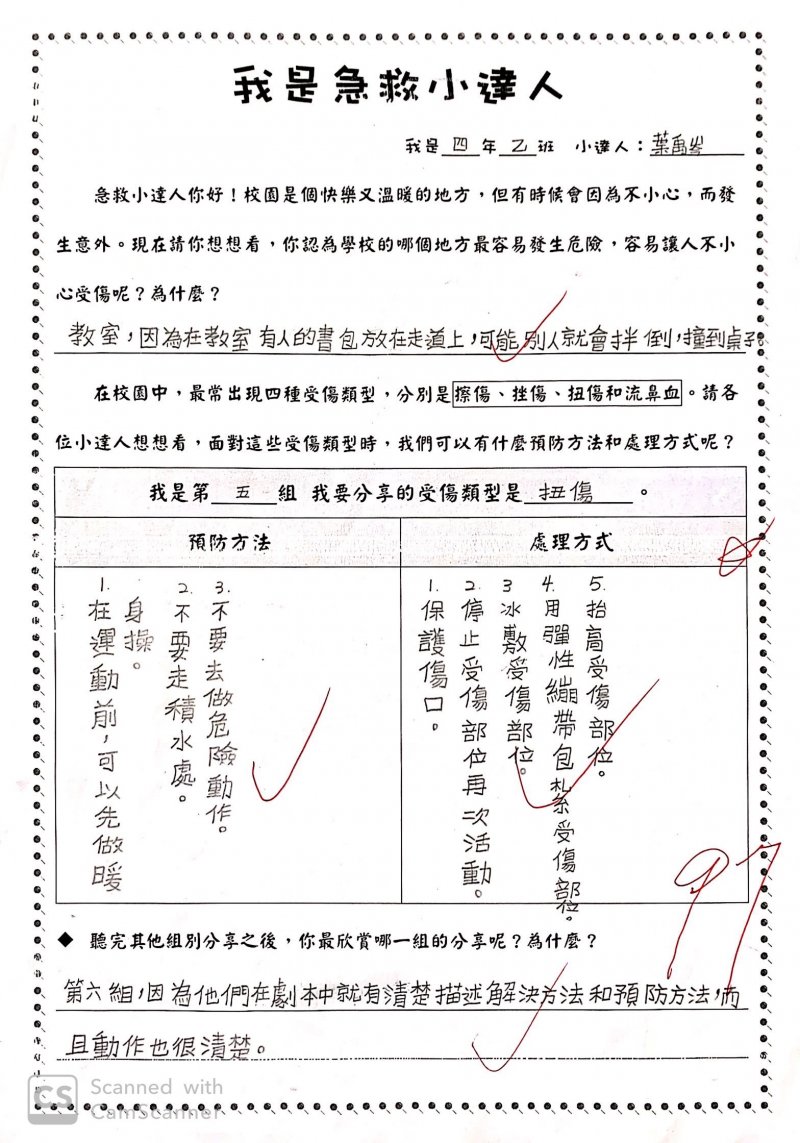 我是急救小達人
我是四年乙班 小達人：葉禹岑
急救小達人你好！校園是個快樂又溫暖的地方，但有時候會因為不小心，而發
生意外。現在請你想想看，你認為學校的哪個地方最容易發生危險，容易讓人不小
心受傷呢？為什麼？
教室，因為在教室有人的書包放在走道上，可能別人就會拌倒，撞到桌子。
在校園中，最常出現四種受傷類型，分別是擦傷、挫傷、扭傷和流鼻血。請各
位小達人想想看，面對這些受傷類型時，我們可以有什麼預防方法和處理方式呢？
我是第五組 我要分享的受傷類型是扭傷。
預防方法
處理方式
1.在運動前，可以先做暖
身操。
2.不要走積水處。
3.不要去做危險動作。
1.保護傷口。
2.停止受傷部位再次活動。
3冰敷受傷部位。
4.用彈性繃帶包紮受傷部位。
5.抬高受傷部位。
97
◆ 聽完其他組別分享之後，你最欣賞哪一組的分享呢？為什麼？
第六組，因為他們在劇本中就有清楚描述解決方法和預防方法，而
且動作也很清楚。
CS Scanned with
CamScanner